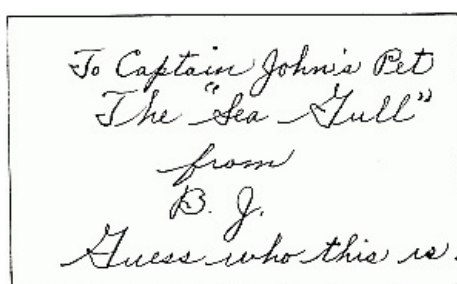 To Captain John's Pet
The "Sea Gull"
from
B. J.
Guess who this is.